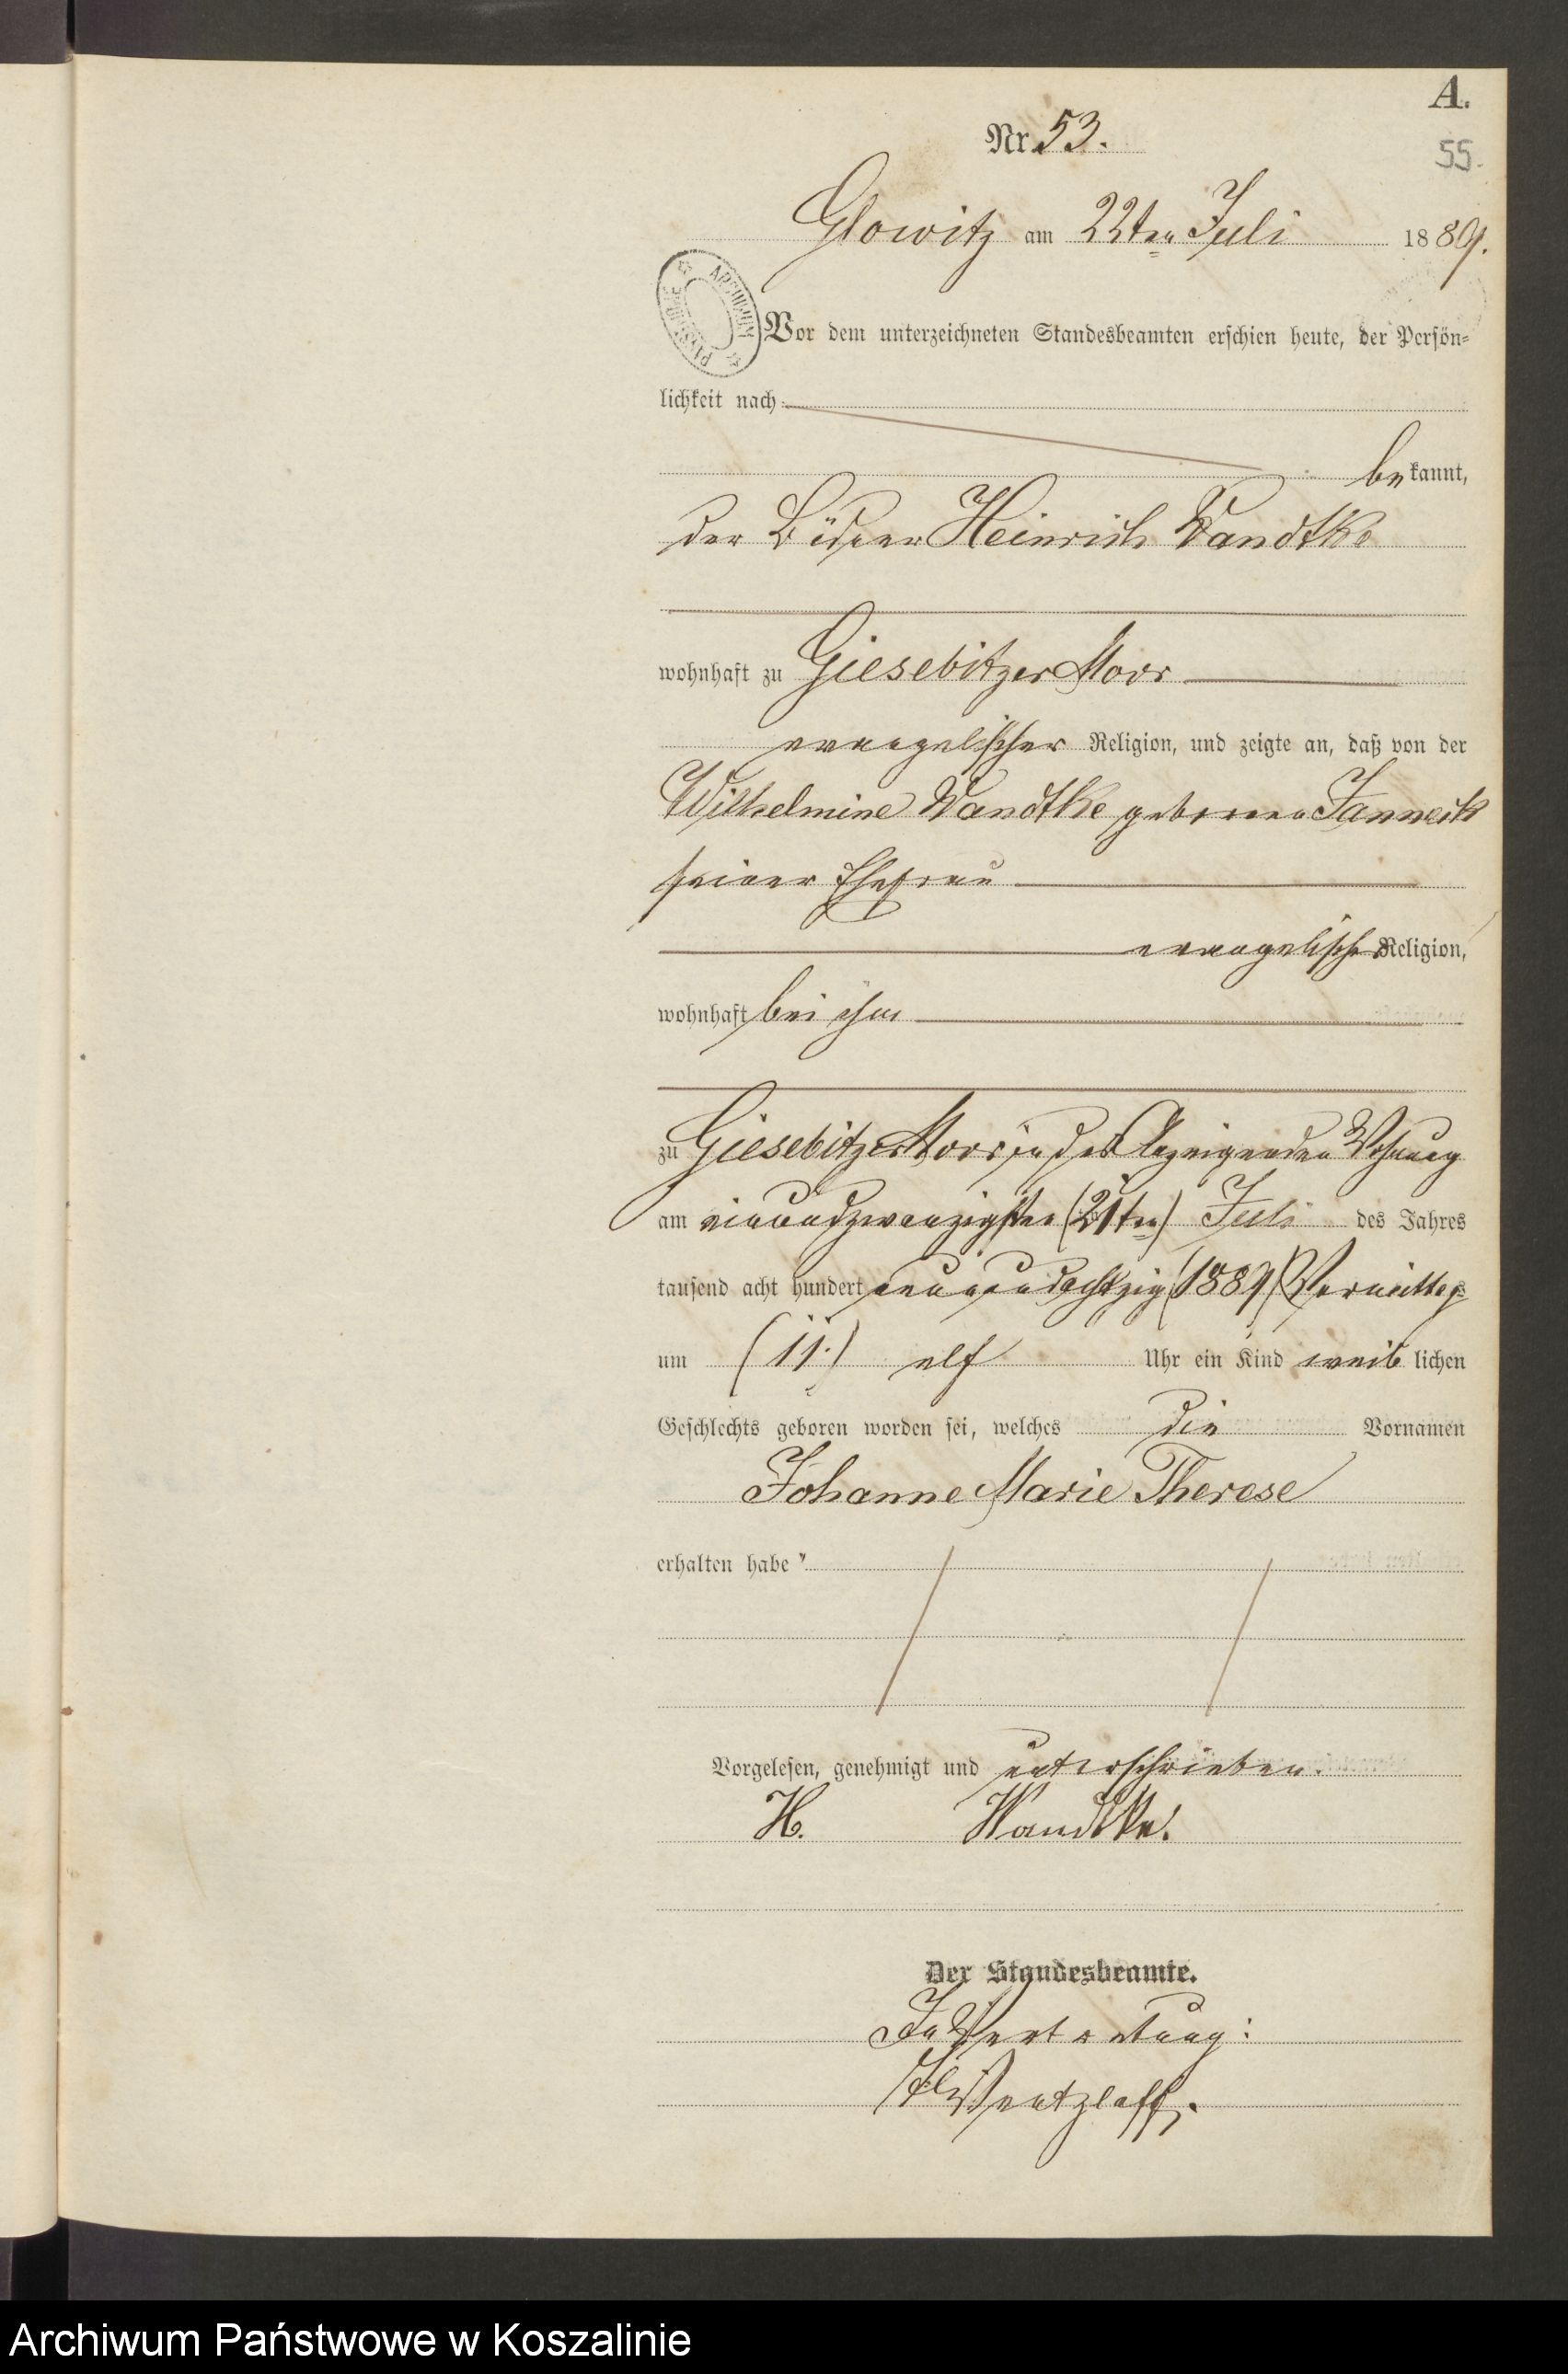 A.
Nr. 53.
55.
Glowitz am 22ten Juli 1889.
ARCHIWUM PAŃSTWOWE
Vor dem unterzeichneten Standesbeamten erschien heute, der Persön-
lichkeit nach
bekannt,
der Büdner Heinrich Wandtke
wohnhaft zu Giesebitzer Moor
evangelischer Religion, und zeigte an, daß von der
Wilhelmine Wandtke geborenen Janneck
seiner Ehefrau
evangelischer Religion,
wohnhaft bei ihm
zu Giesebitzer Moor in des Anzeigenden Wohnung
am einundzwanzigsten (21ten) Juli des Jahres
tausend acht hundert neunundachtzig (1889) Vormittags
um (11.) elf Uhr ein Kind weiblichen
Geschlechts geboren worden sei, welches die Vornamen
Johanne Marie Therese
erhalten habe
Vorgelesen, genehmigt und unterschrieben.
H. Wandtke.
Der Standesbeamte.
In Vertretung:
Wentzlaff.
Archiwum Państwowe w Koszalinie